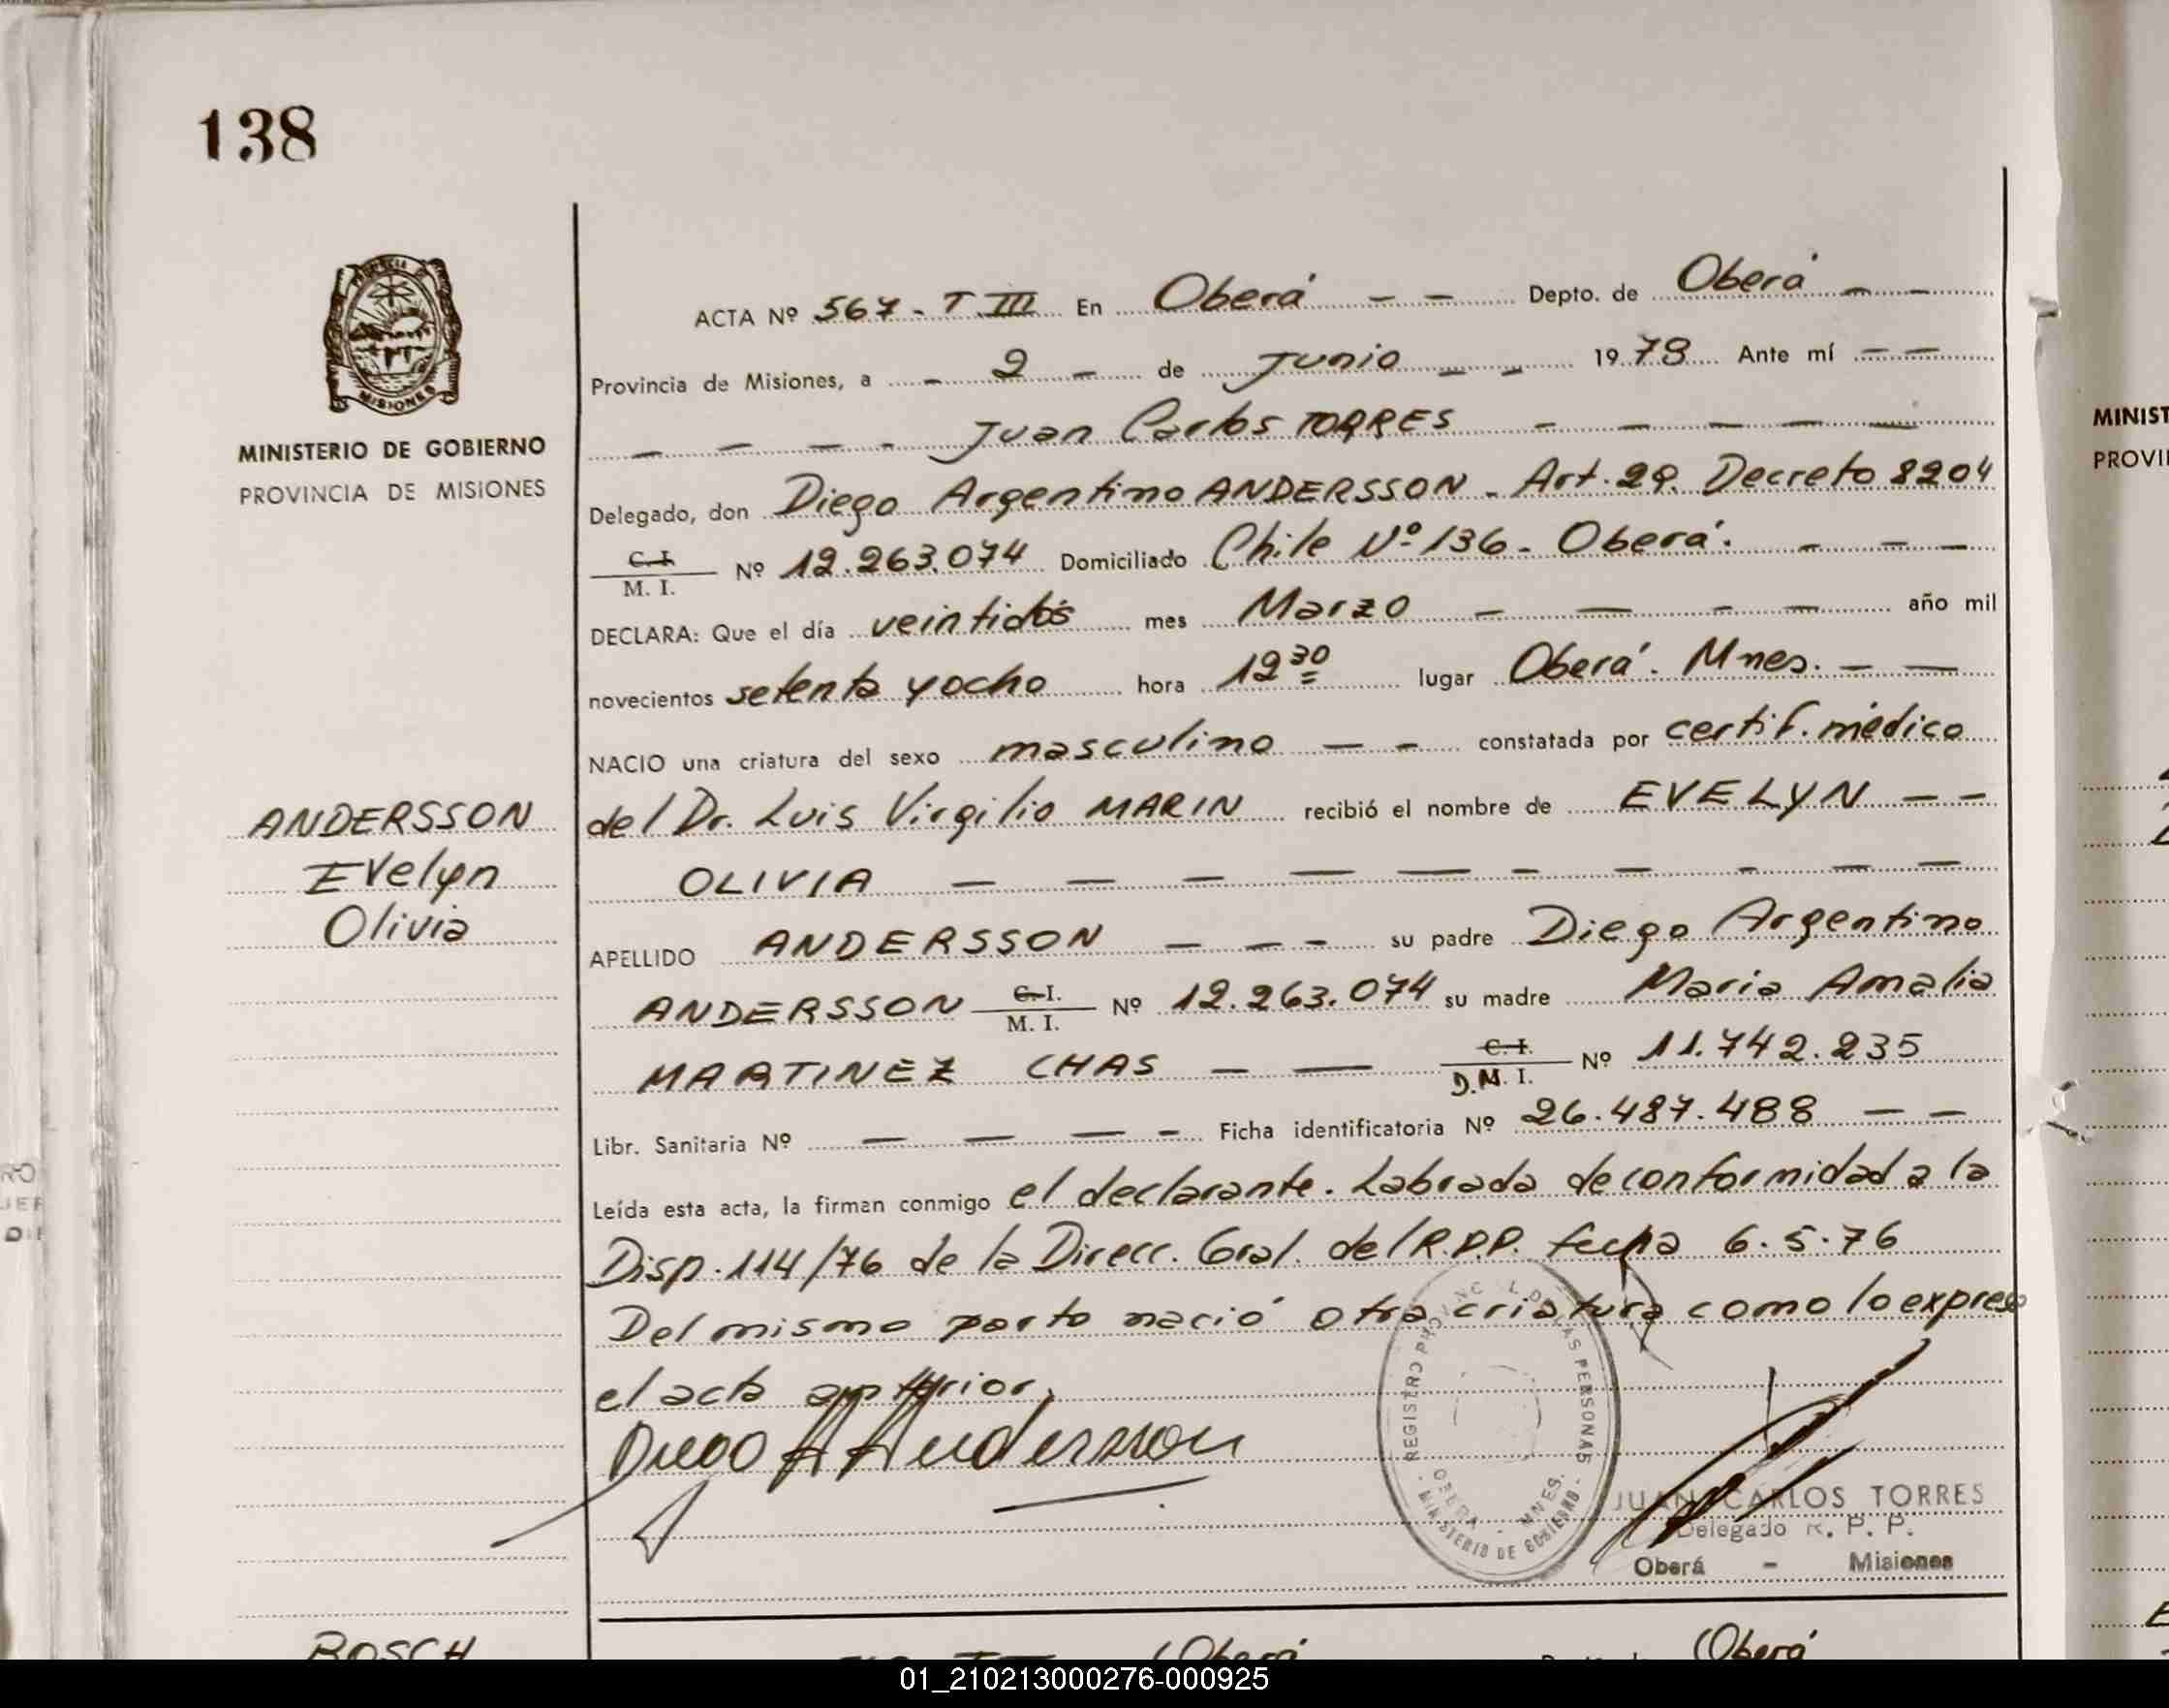 138
MINISTERIO DE GOBIERNO
PROVINCIA DE MISIONES
ANDERSSON
Evelyn
Olivia
ACTA Nº 567 - T III En Oberá - - Depto. de Oberá - -
Provincia de Misiones, a - 2 - de Junio - - 1978 Ante mí - -
- - - - Juan Carlos TORRES - - - - -
Delegado, don Diego Argentino ANDERSSON - Art. 29. Decreto 8204
C. I. / M. I. Nº 12.263.074 Domiciliado Chile Nº 136 - Oberá. - - -
DECLARA: Que el día veintidós mes Marzo - - - - año mil
novecientos setenta y ocho hora 12 30 lugar Oberá. Mnes. - -
NACIO una criatura del sexo masculino - - constatada por certif. médico
del Dr. Luis Virgilio MARIN recibió el nombre de EVELYN - -
OLIVIA - - - - - - - - - -
APELLIDO ANDERSSON - - - su padre Diego Argentino
ANDERSSON C. I. / M. I. Nº 12.263.074 su madre Maria Amalia
MARTINEZ CHAS - - C. I. / D.M. I. Nº 11.742.235
Libr. Sanitaria Nº - - - - Ficha identificatoria Nº 26.487.488 - -
Leída esta acta, la firman conmigo el declarante. Labrada de conformidad a la
Disp. 114/76 de la Direcc. Gral. del R.P.P. fecha 6.5.76
Del mismo parto nació otra criatura como lo expresa
el acta anterior.
Diego A Andersson
REGISTRO PROVINCIAL DE LAS PERSONAS
OBERA - MNES.
MINISTERIO DE GOBIERNO
JUAN CARLOS TORRES
Delegado R. P. P.
Oberá - Misiones
BOSCH
Oberá
Oberá
MINIST
PROVI
01_210213000276-000925